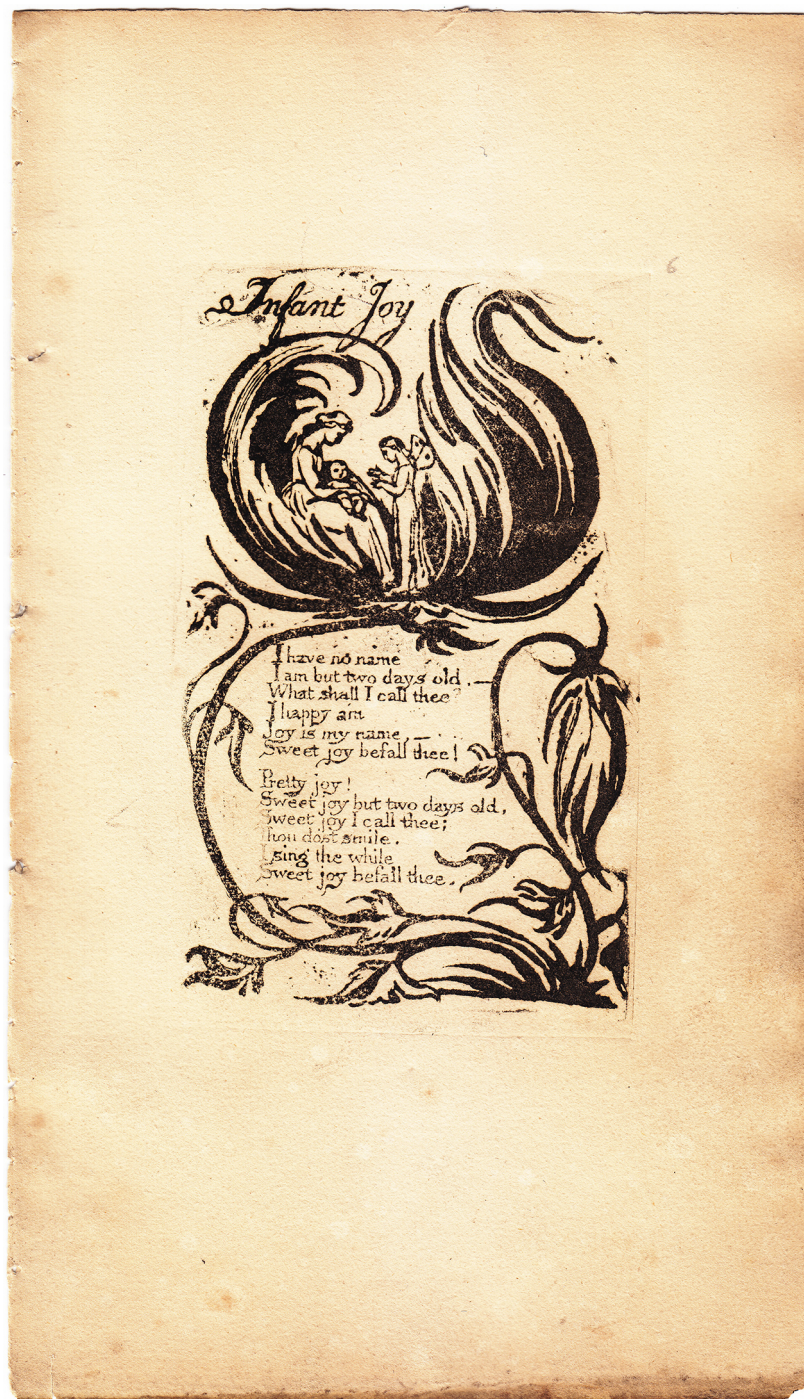 6
Infant Joy
I have no name
I am but two days old.—
What shall I call thee?
I happy am
Joy is my name,—
Sweet joy befall thee!
Pretty joy!
Sweet joy but two days old,
Sweet joy I call thee;
Thou dost smile.
I sing the while
Sweet joy befall thee.